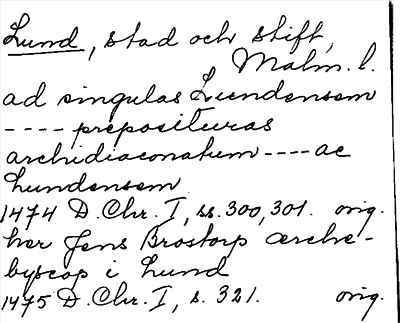 Lund, stad och stift,
Malm. l.
ad singulas Lundensem
---- preposituras
archidiaconatum ---- ac
Lundensem
1474 D. Chr. I, ss. 300, 301. orig.
her Jens Brostorp ærche-
byscop i Lund
1475 D. Chr. I, s. 321. orig.